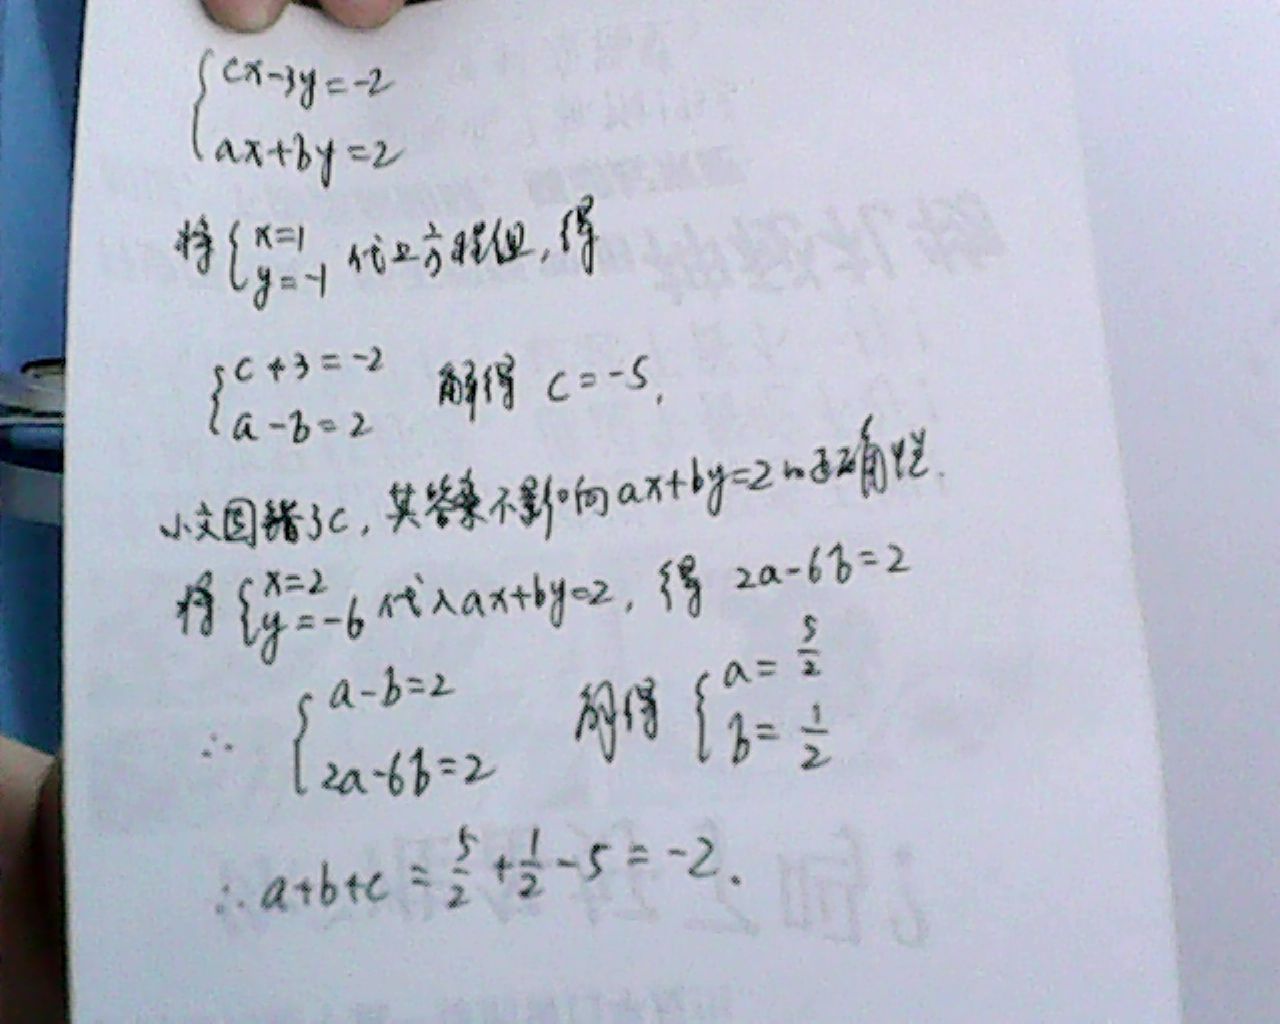 {cx-3y=-2
ax+by=2
将{x=1 y=-1 代上方程组,得
{c+3=-2 解得 c=-5,
a-b=2
小文因错了c,其答案不影响ax+by=2的正确性.
将{x=2 y=-6 代入ax+by=2,得 2a-6b=2
∴ {a-b=2 2a-6b=2 解得 {a=5/2 b=1/2
∴ a+b+c=5/2+1/2-5=-2.